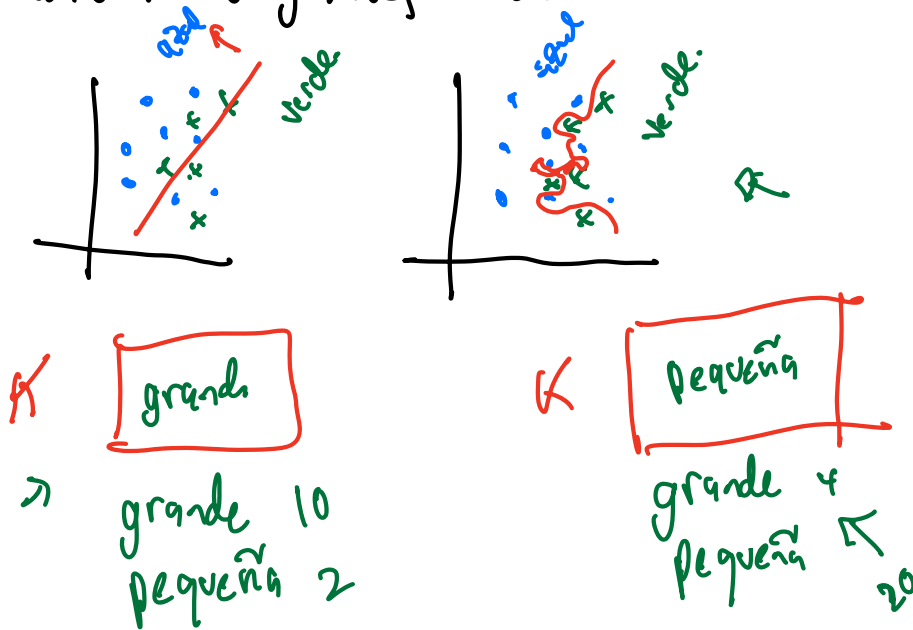 azul
verde
azul
verde.
K
grande
K
pequeña
grande 10
pequeña 2
grande 4
pequeña
20